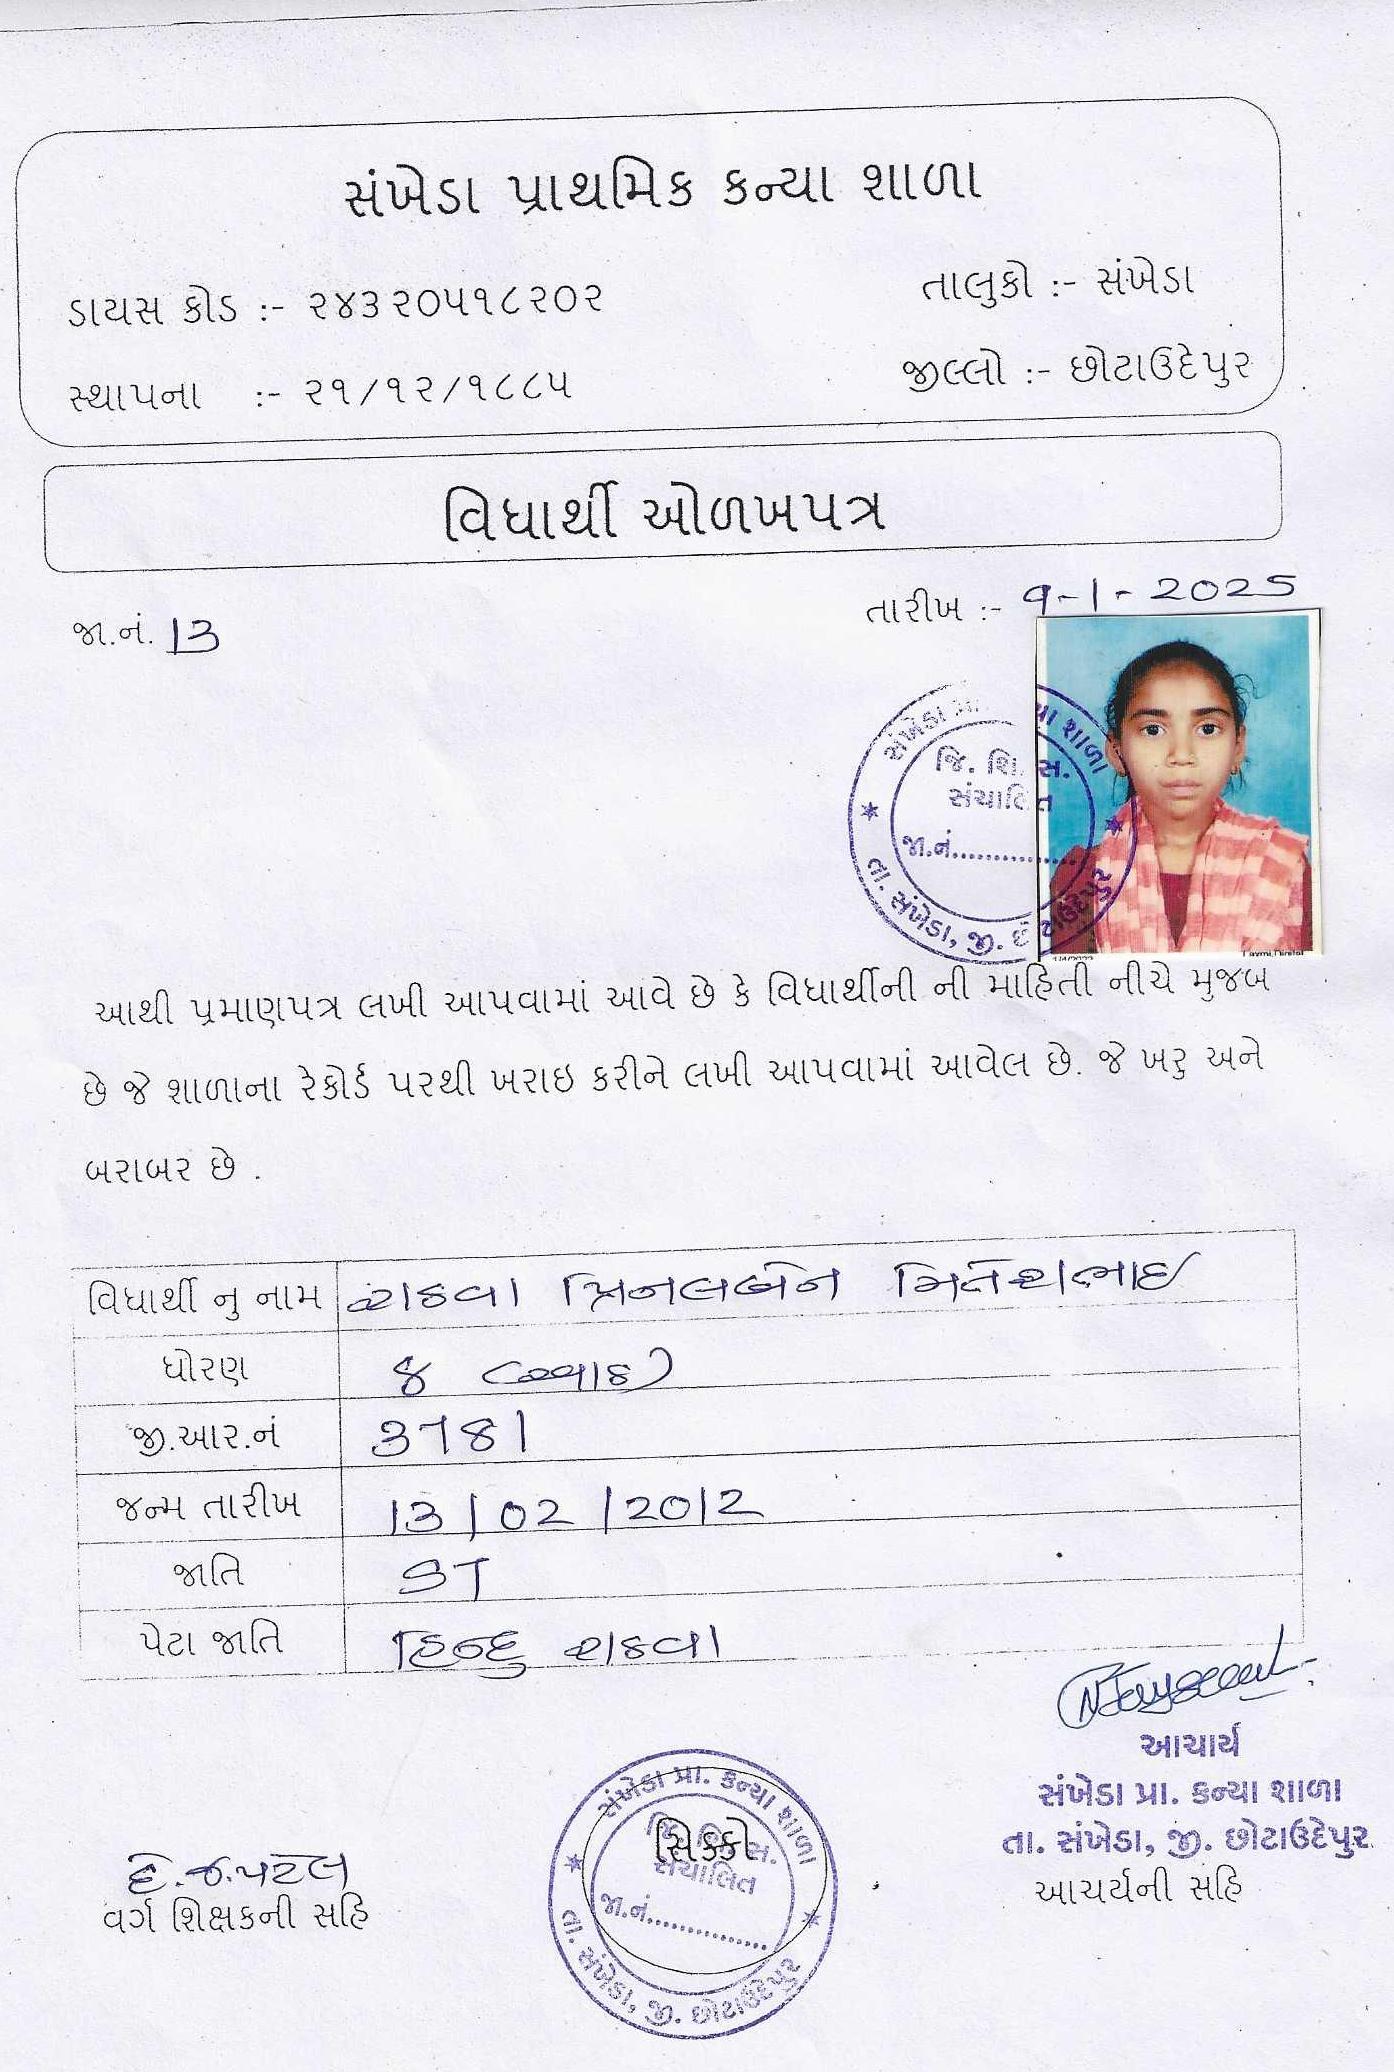 સંખેડા પ્રાથમિક કન્યા શાળા
ડાયસ કોડ :- ૨૪૩૨૦૫૧૮૨૦૨
તાલુકો :- સંખેડા
સ્થાપના :- ૨૧/૧૨/૧૮૮૫
જીલ્લો :- છોટાઉદેપુર
વિધાર્થી ઓળખપત્ર
જા.નં. 13
તારીખ :- ૧-1-2025
સંખેડા પ્રા. કન્યા શાળા
જિ. શિ. સ.
સંચાલિત
જા.નં...............
તા. સંખેડા, જી. છોટાઉદેપુર
Laxmi Digital
આથી પ્રમાણપત્ર લખી આપવામાં આવે છે કે વિધાર્થીની ની માહિતી નીચે મુજબ
છે જે શાળાના રેકોર્ડ પરથી ખરાઇ કરીને લખી આપવામાં આવેલ છે. જે ખરુ અને
બરાબર છે .
વિધાર્થી નુ નામ રાઠવા પ્રિનલબેન મિતેશભાઇ
ધોરણ ૪ (ચાર)
જી.આર.નં 3781
જન્મ તારીખ 13/02/2012
જાતિ ST
પેટા જાતિ હિન્દુ રાઠવા
આચાર્ય
સંખેડા પ્રા. કન્યા શાળા
તા. સંખેડા, જી. છોટાઉદેપુર
આચર્યની સહિ
સંખેડા પ્રા. કન્યા શાળા
જિ. શિ. સ.
સિક્કો
સંચાલિત
જા.નં...............
તા. સંખેડા, જી. છોટાઉદેપુર
હે.જ.પટેલ
વર્ગ શિક્ષકની સહિ